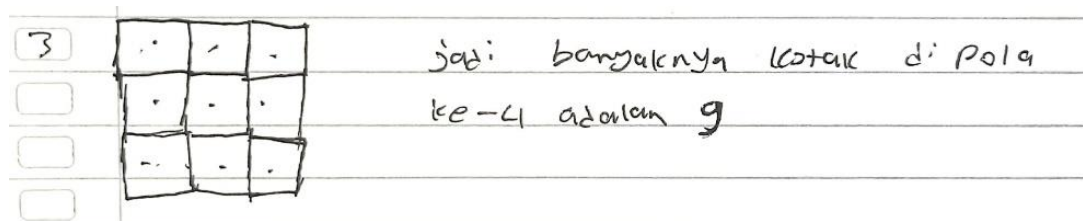 3
jadi banyaknya kotak di pola
ke-4 adalah 9